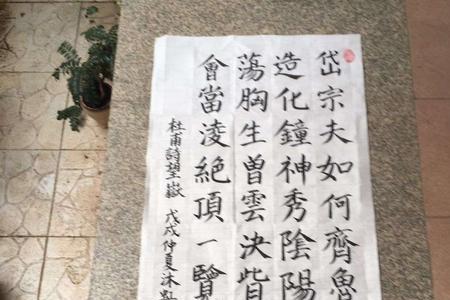 岱宗夫如何齊魯
造化鐘神秀陰陽
蕩胸生曽雲決眥
會當淩絕頂一覽
杜甫詩望嶽戊戌仲夏沐